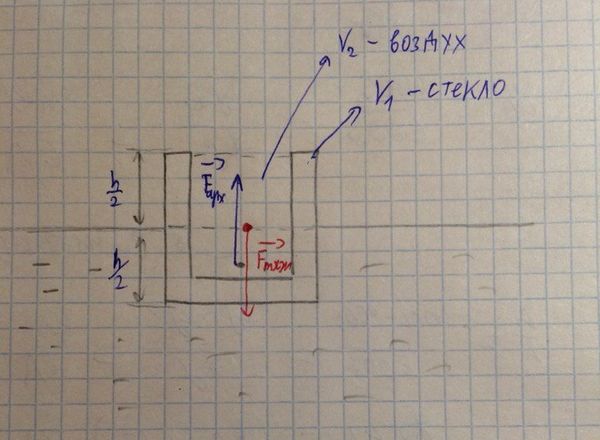 V₂ – воздух
V₁ – стекло
h/2
F арх
h/2
F тяж